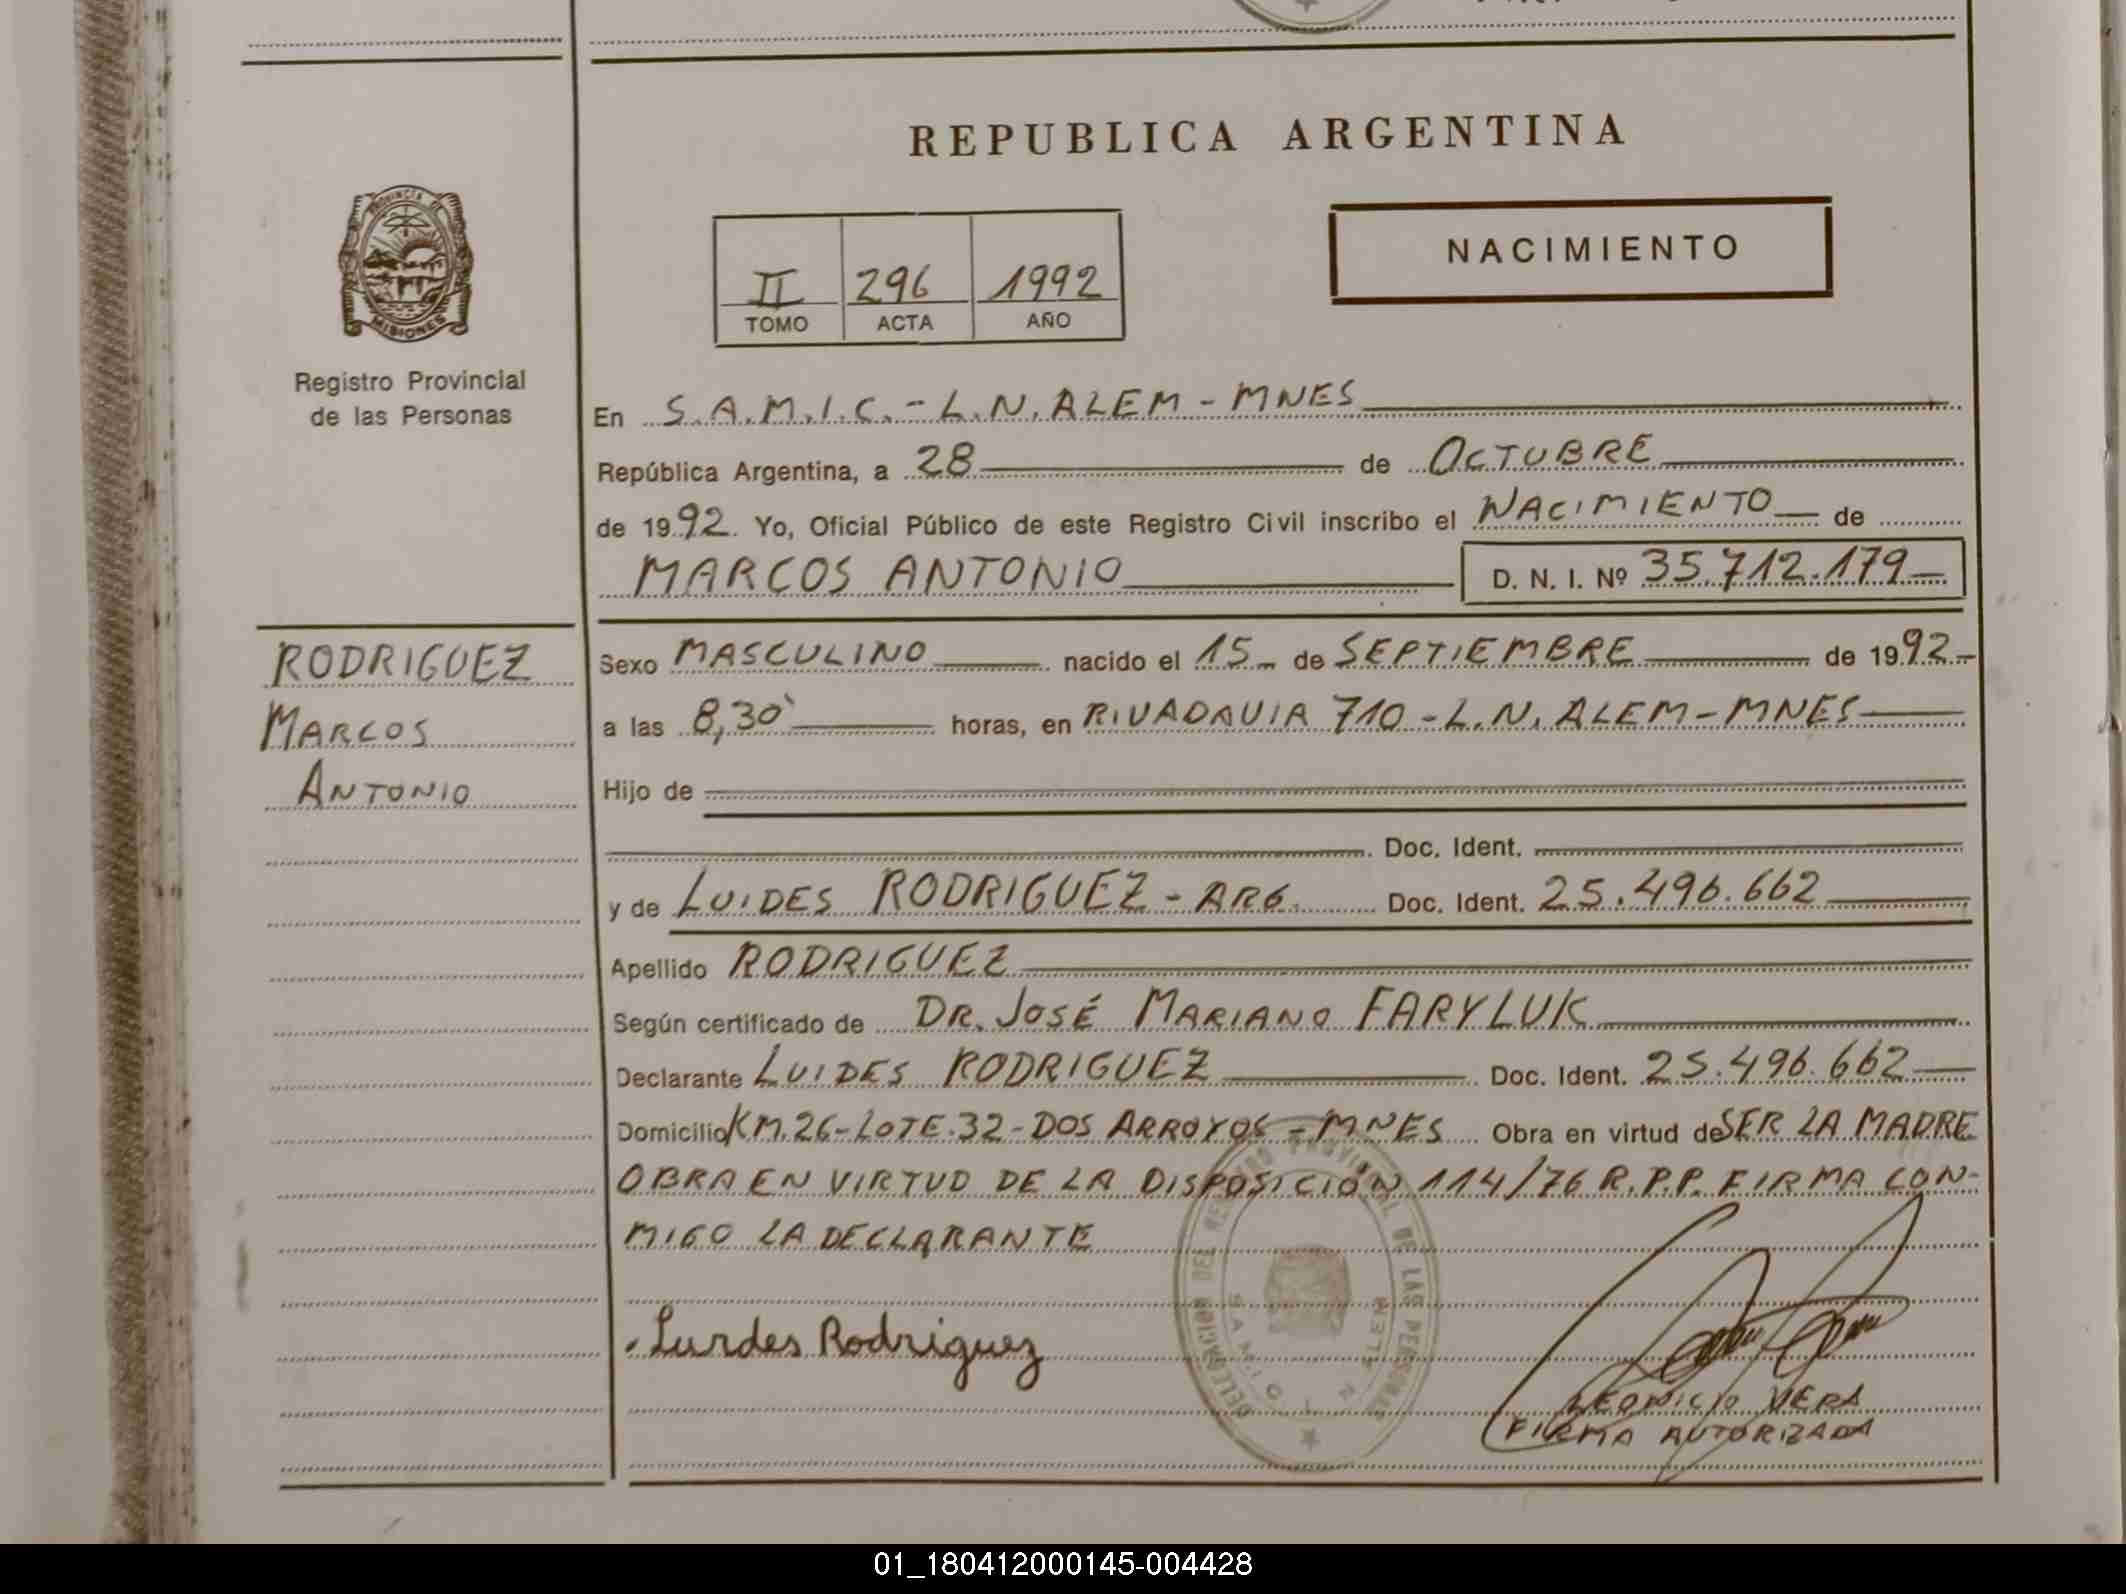 REPUBLICA ARGENTINA
PROVINCIA DE
MISIONES
Registro Provincial
de las Personas
NACIMIENTO
II 296 1992
TOMO ACTA AÑO
En S.A.M.I.C.-L.N.ALEM-MNES
República Argentina, a 28 de OCTUBRE
de 1992. Yo, Oficial Público de este Registro Civil inscribo el NACIMIENTO de
MARCOS ANTONIO D. N. I. Nº 35.712.179
RODRIGUEZ
MARCOS
ANTONIO
Sexo MASCULINO nacido el 15 de SEPTIEMBRE de 1992
a las 8,30' horas, en RIVADAVIA 710-L.N. ALEM-MNES
Hijo de
Doc. Ident.
y de LUIDES RODRIGUEZ-ARG. Doc. Ident. 25.496.662
Apellido RODRIGUEZ
Según certificado de DR. JOSÉ MARIANO FARYLUK
Declarante LUIDES RODRIGUEZ Doc. Ident. 25.496.662
Domicilio KM.26-LOTE.32-DOS ARROYOS-MNES Obra en virtud de SER LA MADRE
OBRA EN VIRTUD DE LA DISPOSICIÓN 114/76 R.P.P. FIRMA CON-
MIGO LA DECLARANTE
DELEGACION DEL REGISTRO PROVINCIAL DE LAS PERSONAS
SAMIC L N ALEM
Lurdes Rodriguez
LEONICIO VERA
FIRMA AUTORIZADA
01_180412000145-004428